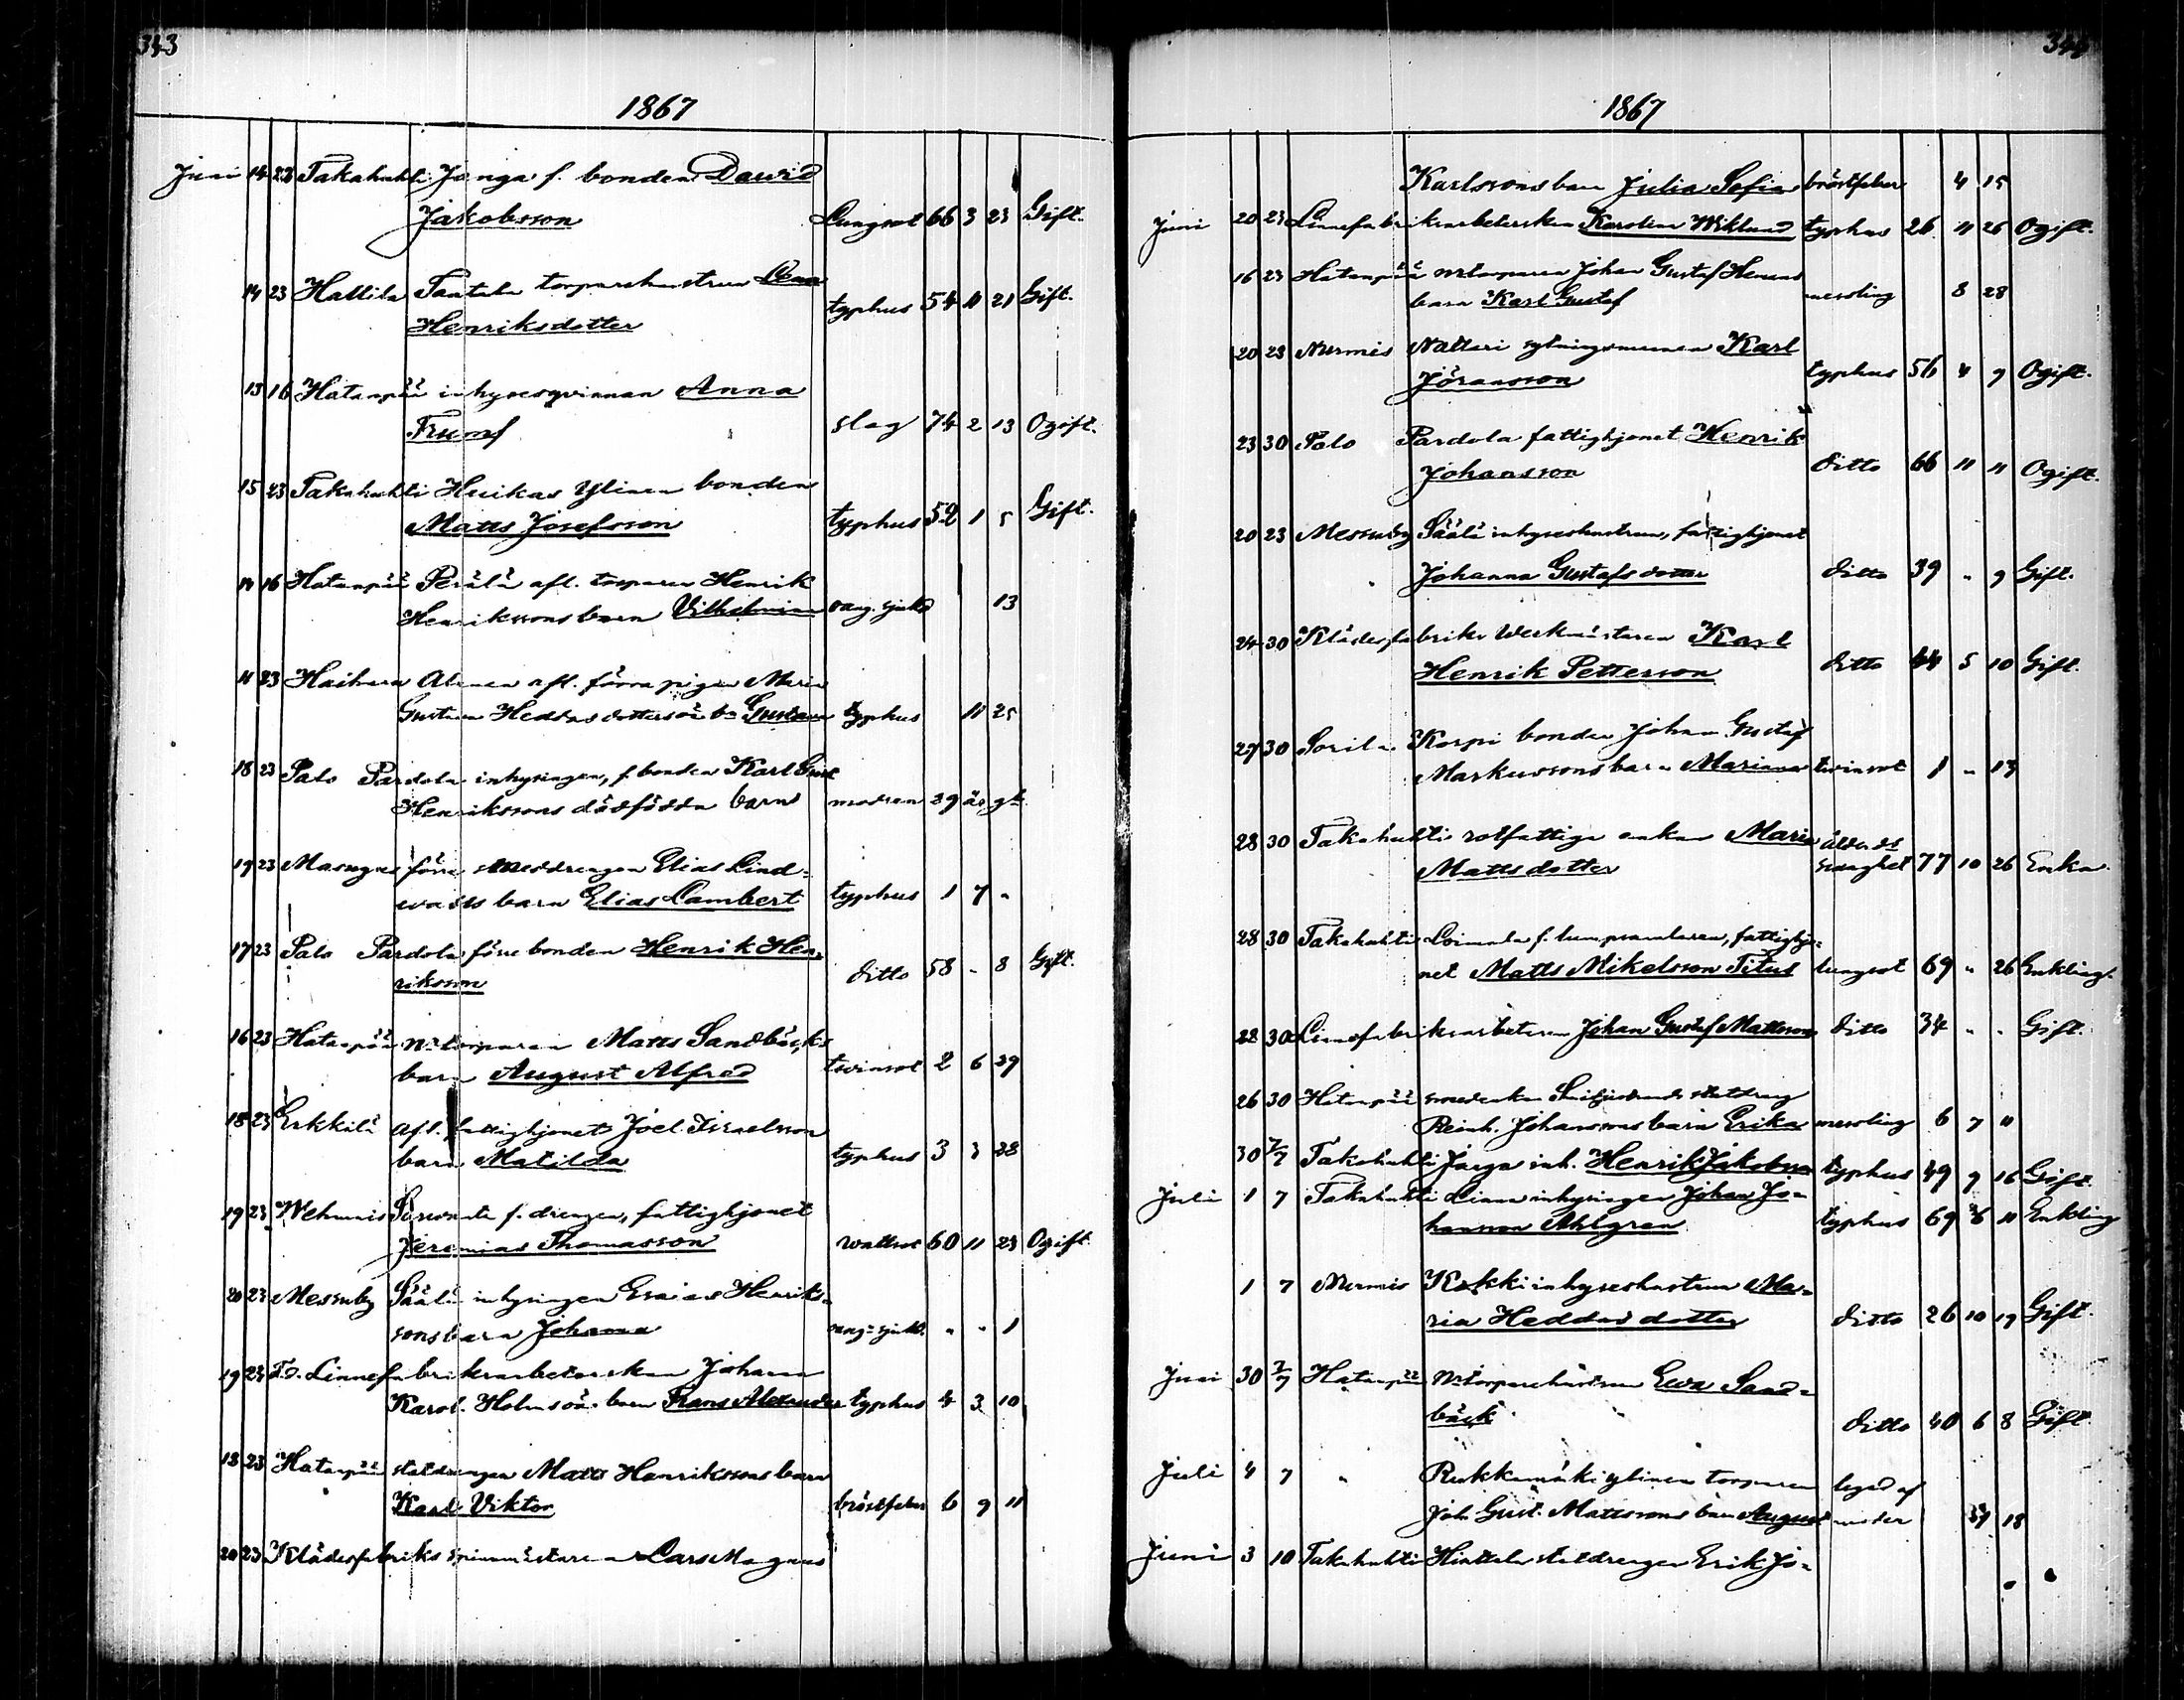 343
1867
Juni 14 23 Takahuhti Janga f. bonden David
Jakobsson Lungsot 66 3 23 Gift.
14 23 Hallila Tantala torparehustrun
Henriksdotter typhus 54 11 21 Gift.
13 16 Hatanpää inhysesqvinnan Anna
slag 74 2 13 Ogift.
15 23 Takahuhti Huikas Ylinen bonden
Matts Josefsson typhus 52 1 5 Gift.
14 16 Hatanpää Perälä afl. torparen Henrik
Henrikssons barn Vilhelmina 13
11 23 Haihara afl. förra pigan Maria
Heddasdotters Gustava typhus 11 25
18 23 Palo Pardola inhysingen, f. bonden Karl Gust
Henrikssons dödfödda barn modren 39 år gl.
19 23 förre smeddrengen Elias Lind-
barn Elias Lambert typhus 1 7 "
17 23 Palo Pardola förre bonden Henrik Hen-
riksson ditto 58 " 8 Gift.
16 23 Hatanpää torparen Matts Sandbäcks
barn August Alfred twinsot 2 6 29
18 23 Erkkilä afl. fattighjonet Joel Israelsson
barn Matilda typhus 3 3 28
19 23 Wehmais f. drengen, fattighjonet
Jeremias Thomasson wattsot 60 11 23 Ogift
20 23 Messuby Säälä inhysingen Esaias Henriks-
sons barn Johanna " " 1
19 23 Linnefabriksarbeterskan Johanna
Karol. Holms barn Frans Alexander typhus 4 3 10
18 23 Hatanpää statdrengen Matts Henrikssons barn
Karl Viktor bröstfeber 6 9 11
20 23 Klädesfabriks spinnmästaren Lars Magnus
344
1867
Karlssons barn Julia Sofia bröstfeber 4 15
Juni 20 23 Linnefabriksarbeterskan Karolina Wiklund typhus 26 11 26 Ogift.
16 23 Hatanpää torparen Johan Gustaf
barn Karl Gustaf messling 8 28
20 23 Nurmis Nattari sytningsmannen Karl
Jöransson typhus 56 4 9 Ogift.
23 30 Palo Pardola fattighjonet Henrik
Johansson ditto 66 11 11 Ogift.
20 23 Messuby Säälä inhyseshustrun, fattighjonet
Johanna Gustafsdotter ditto 39 " 9 Gift.
24 30 Klädesfabriks Werkmästaren Karl
Henrik Petterson ditto 44 5 10 Gift.
27 30 Sorila Korpi bonden Johan Gustaf
Markussons barn Mariana twinsot 1 " 13
28 30 Takahuhti rotfattiga enkan Maria
Mattsdotter ålderds svaghet 77 10 26 Enka.
28 30 Takahuhti Loimala f. lumpsamlaren, fattighjo-
net Matts Mikelsson Titus lungsot 69 " 26 Enkling.
28 30 Linnefabriksarbetaren Johan Gustaf Mattsson ditto 34 " " Gift.
26 30 Hatanpää statdreng
Reinh. Johanssons barn Erika messling 6 7 11
30 7/7 Takahuhti Janga inh. Henrik Jakobsson typhus 49 9 16 Gift.
Juli 1 7 Takahuhti Linna inhysingen Johan Jo-
hansson Ahlgren typhus 69 6 11 Enkling
1 7 Nurmis inhyseshustrun Ma-
ria Heddasdotter ditto 26 10 19 Gift.
Juni 30 7/7 Hatanpää torparehustrun Ewa Sand-
bäck ditto 40 6 8 Gift.
Juli 4 7 " Rukkamäki ylinen torparen legad af
Joh. Gust. Mattssons barn August moder 18
Juni 3 10 Takahuhti Hirttala statdrengen Erik Jo-